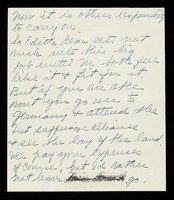 Now it is others responsibility
to carry on.
So Edith dear let's not
rush into this big
job until we both feel
like it & fit for it.
But if you are able
won't you go over to
Germany & attend the
Int suffrage alliance
& see the lay of the land.
I'll pay your expenses
of course, but I'd rather
not leave go.